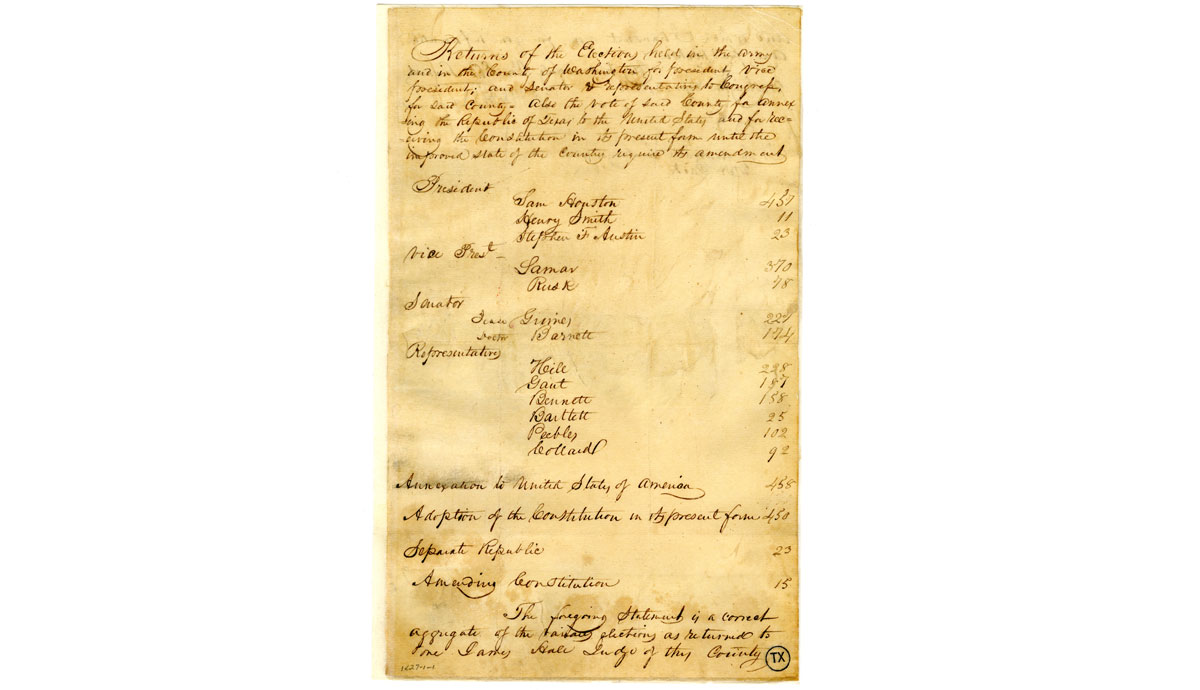 Returns of the Election held in the army
and in the County of Washington for president, Vice
president; and Senator & representatives to Congress,
for said County - Also the vote of said County for annex
ing the Republic of Texas to the United States and for rece=
iving the Constitution in its present form until the
improved state of the Country require its amendment
President
Sam Houston 437
Henry Smith 11
Stephen F Austin 23
Vice Prest -
Lamar 370
Rusk 48
Senator
Jesse Grimes 227
Barnett 144
Representatives
Hill 228
Gant 187
Bennett 158
Bartlett 25
Peebles 102
Collard 92
Annexation to United States of America 458
Adoption of the Constitution in its present form 450
Separate Republic 23
Amending Constitution 15
The foregoing Statement is a correct
aggregate of the various elections as returned to
one James Hall Judge of this County
TX
1627-1-1